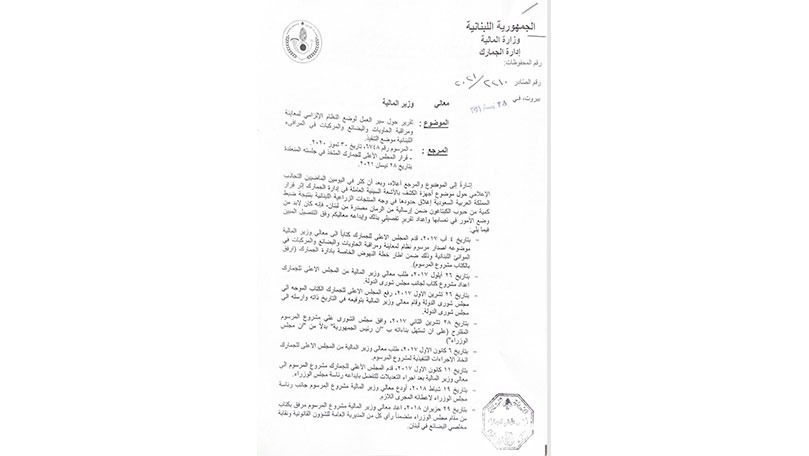 الجمهورية اللبنانية
وزارة المالية
إدارة الجمارك
رقم المحفوظات:
رقم الصادر ٢٠٢١/٢٢١٠
بيروت، في
معالي وزير المالية
الموضوع : تقرير حول سير العمل لوضع النظام الإلزامي لمعاينة
ومراقبة الحاويات والبضائع والمركبات في المرافىء
اللبنانية موضع التنفيذ.
المرجع : - المرسوم رقم ٦٧٤٨، تاريخ ٣٠ تموز ٢٠٢٠.
- قرار المجلس الأعلى للجمارك المتخذ في جلسته المنعقدة
بتاريخ ٢٨ نيسان ٢٠٢١.
إشارة إلى الموضوع والمرجع أعلاه، وبعد أن كثر في اليومين الماضيين التجاذب
الإعلامي حول موضوع أجهزة الكشف بالأشعة السينية العاملة في إدارة الجمارك إثر قرار
المملكة العربية السعودية إغلاق حدودها في وجه المنتجات الزراعية اللبنانية نتيجة ضبط
كمية من حبوب الكبتاغون ضمن إرسالية من الرمان مصدرة من لبنان، فإنه كان لابد من
وضع الأمور في نصابها وإعداد تقرير تفصيلي بذلك وإيداعه معاليكم وفق التفصيل المبين
فيما يلي:
- بتاريخ ٤ آب ٢٠١٧، قدم المجلس الأعلى للجمارك كتاباً الى معالي وزير المالية
موضوعه اصدار مرسوم نظام لمعاينة ومراقبة الحاويات والبضائع والمركبات في
الموانئ اللبنانية وذلك ضمن اطار خطة النهوض الخاصة بادارة الجمارك (ارفق
بالكتاب مشروع المرسوم).
- بتاريخ ٢٦ أيلول ٢٠١٧، طلب معالي وزير المالية من المجلس الاعلى للجمارك
اعداد مشروع كتاب لجانب مجلس شورى الدولة.
- بتاريخ ٢٦ تشرين الاول ٢٠١٧، رفع المجلس الاعلى للجمارك الكتاب الموجه الى
مجلس شورى الدولة وقام معالي وزير المالية بتوقيعه في التاريخ ذاته وارسله الى
مجلس شورى الدولة.
- بتاريخ ٢٨ تشرين الثاني ٢٠١٧، وافق مجلس الشورى على مشروع المرسوم
المقترح (على ان تستهل بناءاته ب "ان رئيس الجمهورية" بدلاً من "ان مجلس
الوزراء")
- بتاريخ ٦ كانون الاول ٢٠١٧، طلب معالي وزير المالية من المجلس الاعلى للجمارك
اتخاذ الاجراءات التنفيذية لمشروع المرسوم.
- بتاريخ ١١ كانون الاول ٢٠١٧، اعاد المجلس الأعلى للجمارك مشروع المرسوم الى
معالي وزير المالية بعد اجراء التعديلات للتفضل بايداعه رئاسة مجلس الوزراء.
- بتاريخ ١٩ شباط ٢٠١٨، أودع معالي وزير المالية مشروع المرسوم جانب رئاسة
مجلس الوزراء لاعطائه المجرى اللازم.
- بتاريخ ٢٩ حزيران ٢٠١٨، اعاد معالي وزير المالية مشروع المرسوم مرفق بكتاب
من مقام مجلس الوزراء متضمناً رأي كل من المديرية العامة للشؤون القانونية ونقابة
مخلصي البضائع في لبنان.